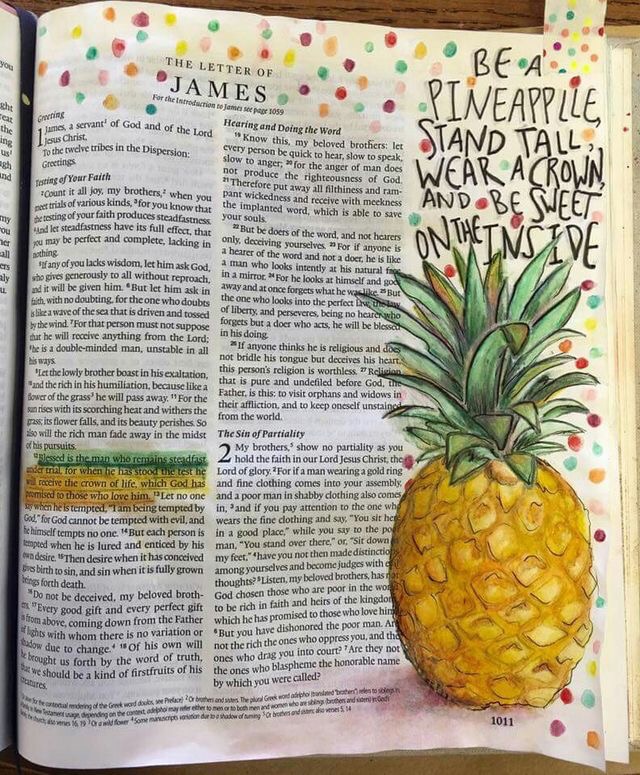 THE LETTER OF
JAMES
For the Introduction to James see page 1059
Greeting
1 James, a servant¹ of God and of the Lord
Jesus Christ,
To the twelve tribes in the Dispersion:
Greetings.
Testing of Your Faith
²Count it all joy, my brothers,² when you
meet trials of various kinds, ³for you know that
the testing of your faith produces steadfastness.
⁴And let steadfastness have its full effect, that
you may be perfect and complete, lacking in
nothing.
⁵If any of you lacks wisdom, let him ask God,
who gives generously to all without reproach,
and it will be given him. ⁶But let him ask in
faith, with no doubting, for the one who doubts
is like a wave of the sea that is driven and tossed
by the wind. ⁷For that person must not suppose
that he will receive anything from the Lord;
⁸he is a double-minded man, unstable in all
his ways.
⁹Let the lowly brother boast in his exaltation,
¹⁰and the rich in his humiliation, because like a
flower of the grass³ he will pass away. ¹¹For the
sun rises with its scorching heat and withers the
grass; its flower falls, and its beauty perishes. So
also will the rich man fade away in the midst
of his pursuits.
¹²Blessed is the man who remains steadfast
under trial, for when he has stood the test he
will receive the crown of life, which God has
promised to those who love him. ¹³Let no one
say when he is tempted, "I am being tempted by
God," for God cannot be tempted with evil, and
he himself tempts no one. ¹⁴But each person is
tempted when he is lured and enticed by his
own desire. ¹⁵Then desire when it has conceived
gives birth to sin, and sin when it is fully grown
brings forth death.
¹⁶Do not be deceived, my beloved broth-
ers. ¹⁷Every good gift and every perfect gift
is from above, coming down from the Father
of lights with whom there is no variation or
shadow due to change.⁴ ¹⁸Of his own will
he brought us forth by the word of truth,
that we should be a kind of firstfruits of his
creatures.
Hearing and Doing the Word
¹⁹Know this, my beloved brothers: let
every person be quick to hear, slow to speak,
slow to anger; ²⁰for the anger of man does
not produce the righteousness of God.
²¹Therefore put away all filthiness and ram-
pant wickedness and receive with meekness
the implanted word, which is able to save
your souls.
²²But be doers of the word, and not hearers
only, deceiving yourselves. ²³For if anyone is
a hearer of the word and not a doer, he is like
a man who looks intently at his natural face
in a mirror. ²⁴For he looks at himself and goes
away and at once forgets what he was like. ²⁵But
the one who looks into the perfect law, the law
of liberty, and perseveres, being no hearer who
forgets but a doer who acts, he will be blessed
in his doing.
²⁶If anyone thinks he is religious and does
not bridle his tongue but deceives his heart,
this person's religion is worthless. ²⁷Religion
that is pure and undefiled before God, the
Father, is this: to visit orphans and widows in
their affliction, and to keep oneself unstained
from the world.
The Sin of Partiality
2 My brothers,⁵ show no partiality as you
hold the faith in our Lord Jesus Christ, the
Lord of glory. ²For if a man wearing a gold ring
and fine clothing comes into your assembly,
and a poor man in shabby clothing also comes
in, ³and if you pay attention to the one who
wears the fine clothing and say, "You sit here
in a good place," while you say to the poor
man, "You stand over there," or, "Sit down
my feet," ⁴have you not then made distinctions
among yourselves and become judges with
thoughts? ⁵Listen, my beloved brothers, has not
God chosen those who are poor in the world
to be rich in faith and heirs of the kingdom
which he has promised to those who love him?
⁶But you have dishonored the poor man. Are
not the rich the ones who oppress you, and the
ones who drag you into court? ⁷Are they not
the ones who blaspheme the honorable name
by which you were called?
BE A
PINEAPPLLE,
STAND TALL,
WEAR A CROWN,
AND BE SWEET
ON THE INSIDE
1011